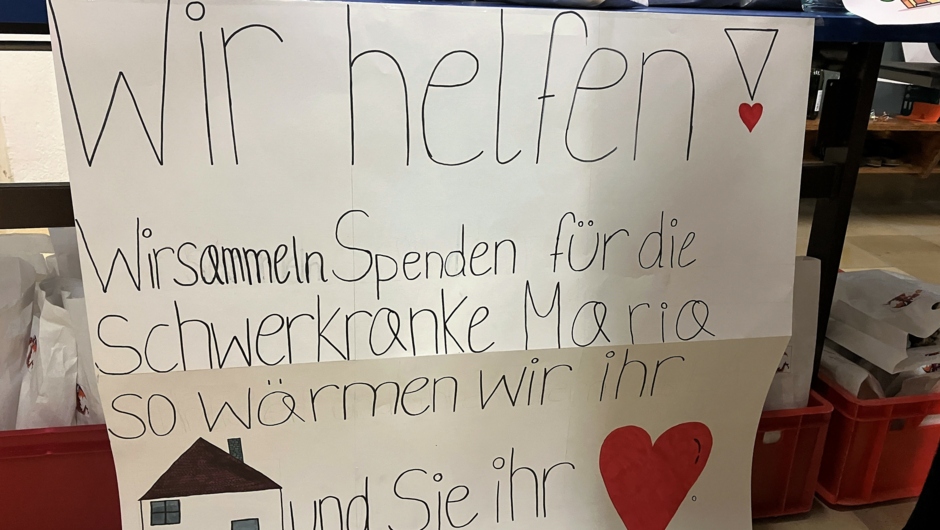 Wir helfen!
Wir sammeln Spenden für die
schwerkranke Maria
so wärmen wir ihr
und Sie ihr